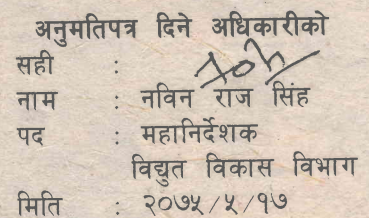 अनुमतिपत्र दिने अधिकारीको
सही :
नाम : नविन राज सिंह
पद : महानिर्देशक
विद्युत विकास विभाग
मिति : २०७५/५/१७